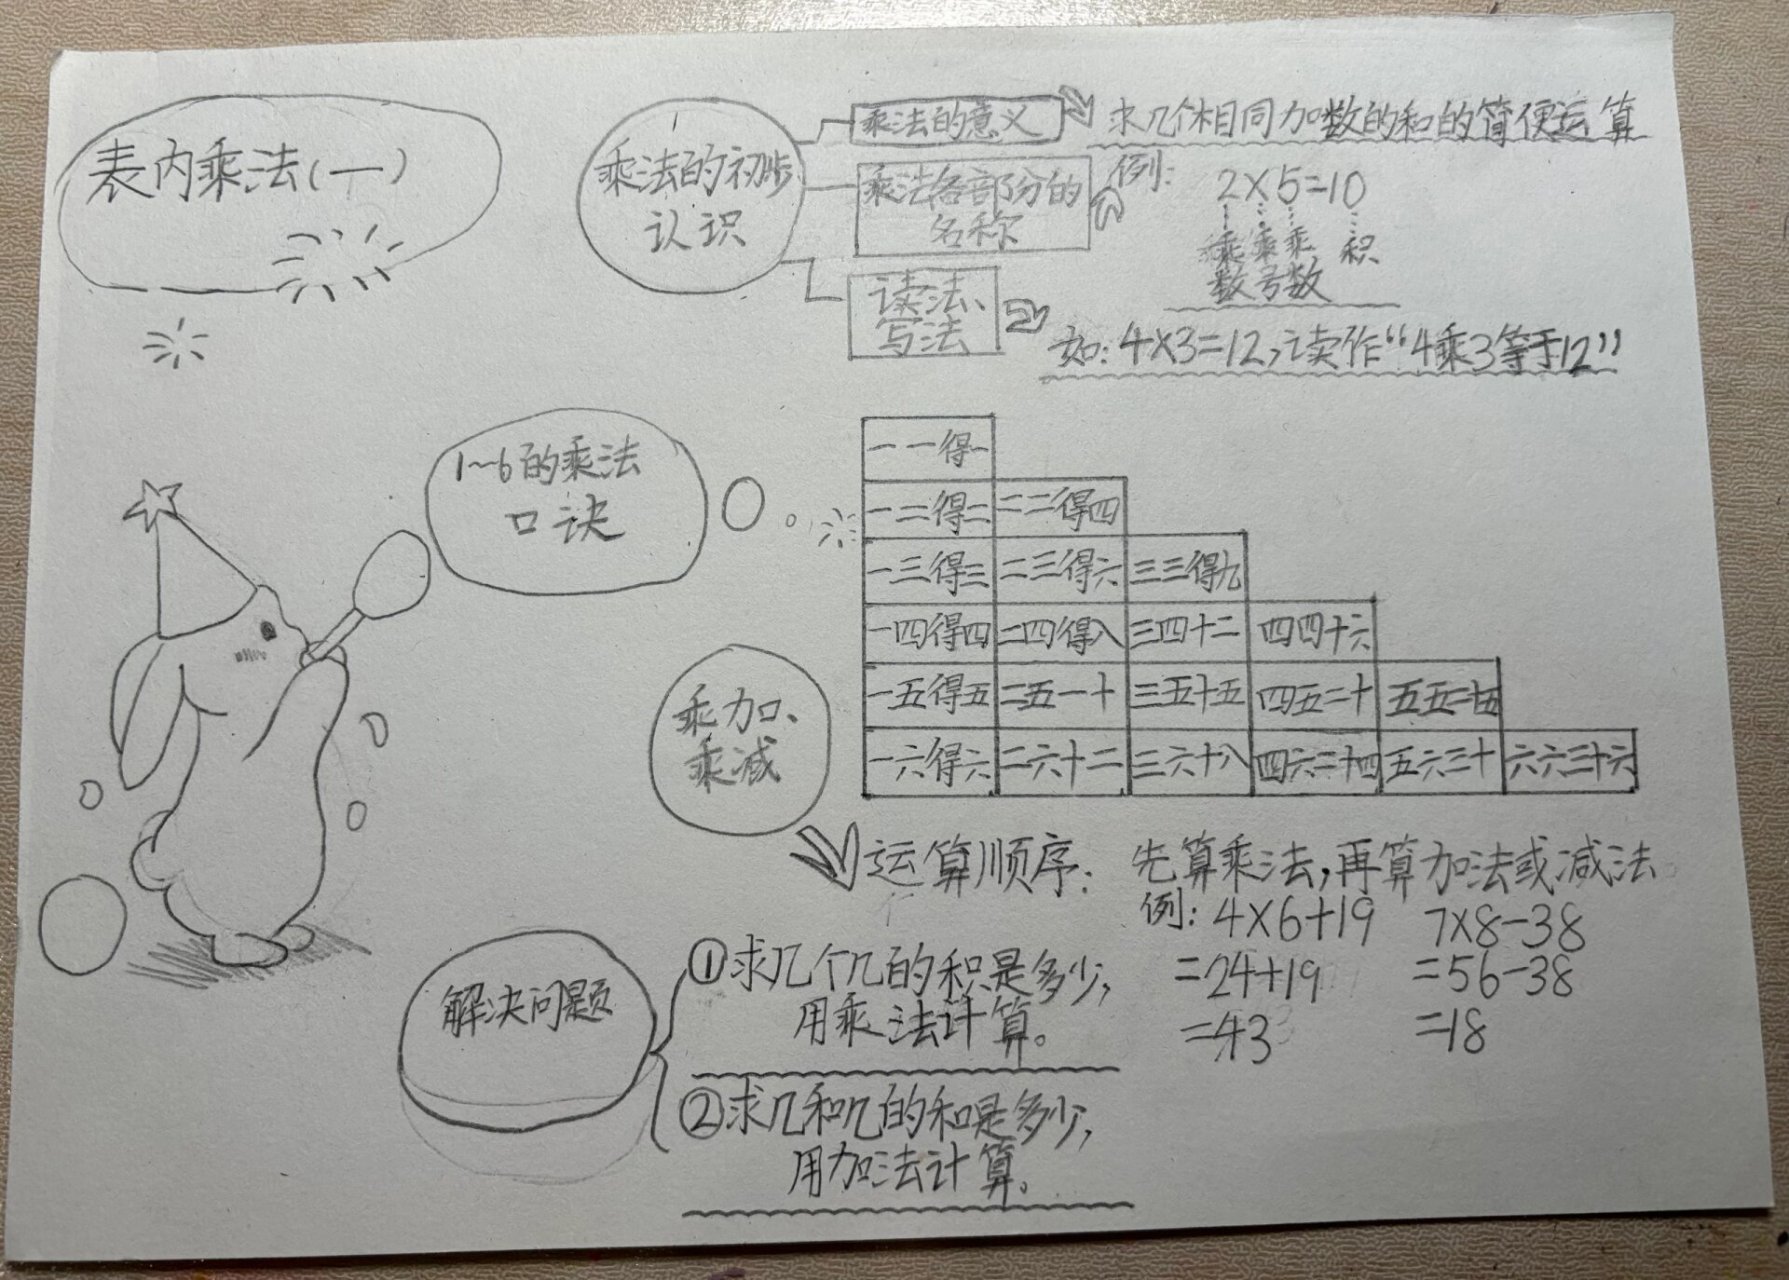 表内乘法(一)
乘法的初步
认识
乘法的意义
求几个相同加数的和的简便运算
乘法各部分的
名称
例:
2×5=10
乘 乘 乘 积
数 号 数
读法、
写法
如:4×3=12,读作“4乘3等于12”
1~6的乘法
口诀
一一得一
一二得二 二二得四
一三得三 二三得六 三三得九
一四得四 二四得八 三四十二 四四十六
一五得五 二五一十 三五十五 四五二十 五五二十五
一六得六 二六十二 三六十八 四六二十四 五六三十 六六三十六
乘加、
乘减
运算顺序: 先算乘法,再算加法或减法
例: 4×6+19 7×8-38
=24+19 =56-38
=43 =18
解决问题
①求几个几的积是多少,
用乘法计算。
②求几和几的和是多少,
用加法计算。